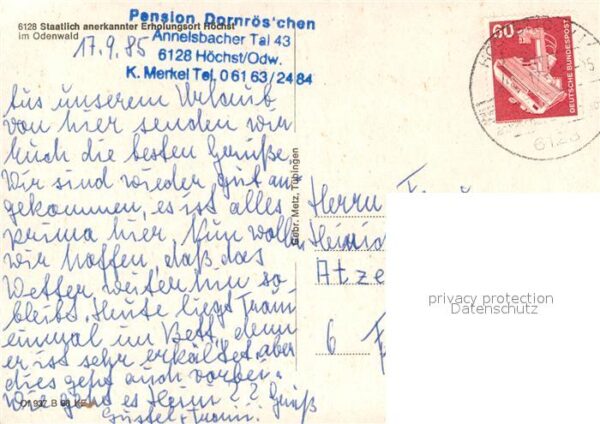 6128 Staatlich anerkannter Erholungsort Höchst
im Odenwald
Pension Dornrös'chen
Annelsbacher Tal 43
6128 Höchst/Odw.
K. Merkel Tel. 06163/2484
17.9.85
Aus unserem Urlaub
von hier senden wir
Euch die besten Grüße
Wir sind wieder gut an-
gekommen, es ist alles
prima hier. Nun wollen
wir hoffen, daß das
Wetter weiterhin so
bleibt. Heute liegt
einmal im Bett, denn
er ist sehr erkältet, aber
dies geht auch vorbei.
Wie geht es Heini?? Gruß
Gebr. Metz, Tübingen
60
DEUTSCHE BUNDESPOST
6128
Herrn
Atze
6 F
privacy protection
Datenschutz